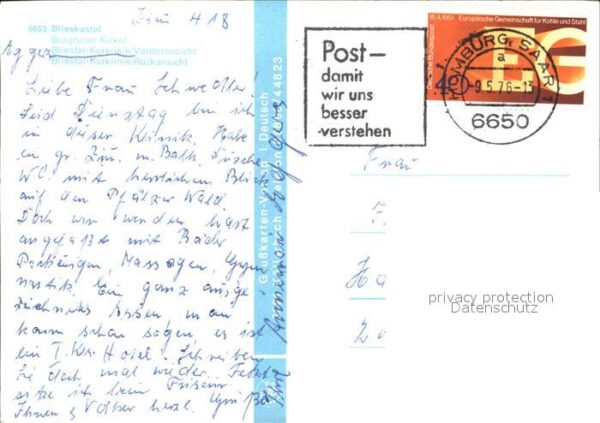 Zim 418
6653 Blieskastel
Burgruine Kirkel
Bliestal-Kurklinik/Vorderansicht
Bliestal-Kurklinik/Rückansicht
Liebe Frau
Seid Dienstag bin ich
in dieser Klinik. Habe
ein gr. Zim. m. Balk. Dusche
WC. mit herrlichem Blick
auf den Pfälzer Wald.
Doch wir werden hart
angefaßt mit Bäder
Packungen, Massagen, Gym
nastik. Ein ganz ausge
zeichnetes haben man
kann schon sagen es ist
ein I. Kl. Hotel. Schreiben
Sie doch mal wieder.
sitze ich beim Friseur.
Ihnen & Volker herzl.
Grußkarten-Verlag I. Deutsch
Post-
damit
wir uns
besser
verstehen
18.4.1951 Europäische Gemeinschaft für Kohle und Stahl
Deutsche Bundespost
40
EG
HOMBURG, SAAR 1
a
-9.5.76-13
6650
Frau
F
Ha
privacy protection
Datenschutz